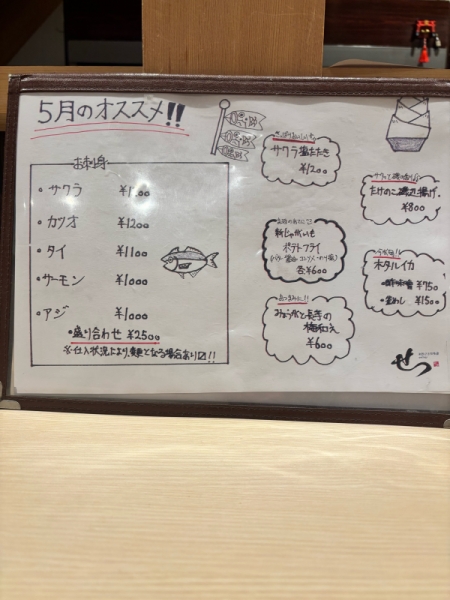 5月のオススメ!!
お刺身
・サワラ ¥1100
・カツオ ¥1200
・タイ ¥1100
・サーモン ¥1000
・アジ ¥1000
・盛り合わせ ¥2500
※仕入状況により、変更となる場合あり〼!!
サワラ藁たたき
¥1200
新じゃがいも
ポテトフライ
各¥600
みょうがと長芋の
梅和え
¥600
たけのこ磯辺揚げ
¥800
ホタルイカ
・酢味噌 ¥750
・釜めし ¥1500
せつ